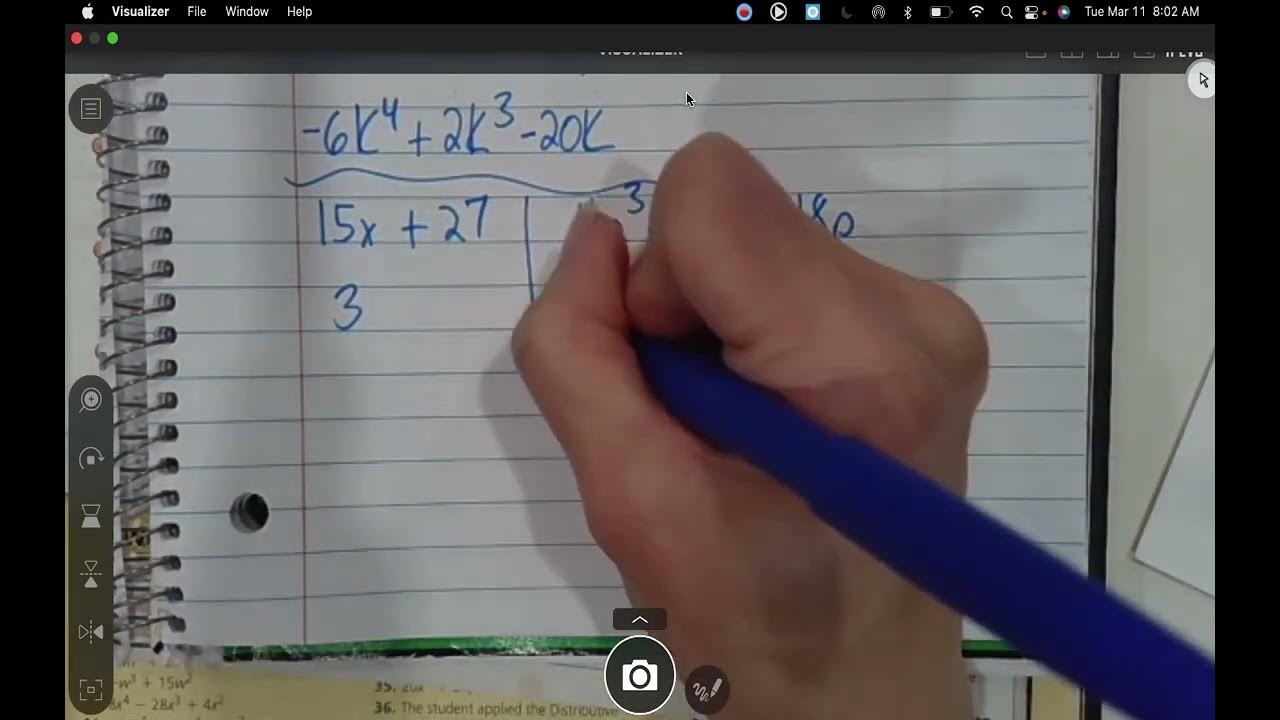 Visualizer File Window Help Tue Mar 11 8:02 AM
VISUALIZER
-6k⁴ + 2k³ - 20k
15x + 27
3
18p
3
w³ + 15w²
8x⁴ − 28x³ + 4x²
35.
36. The student applied the Distributive